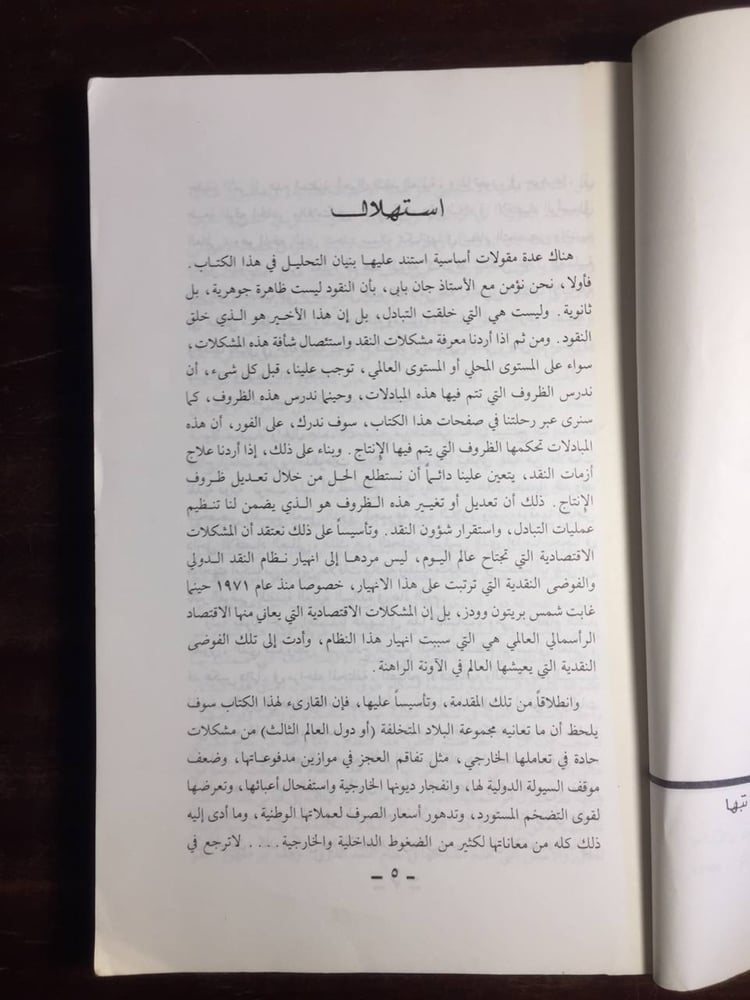 استهلال
هناك عدة مقولات أساسية استند عليها بنيان التحليل في هذا الكتاب.
فأولا، نحن نؤمن مع الأستاذ جان بابى، بأن النقود ليست ظاهرة جوهرية، بل
ثانوية. وليست هي التي خلقت التبادل، بل إن هذا الأخير هو الذي خلق
النقود. ومن ثم اذا أردنا معرفة مشكلات النقد واستئصال شأفة هذه المشكلات،
سواء على المستوى المحلي أو المستوى العالمي، توجب علينا، قبل كل شىء، أن
ندرس الظروف التي تتم فيها هذه المبادلات، وحينما ندرس هذه الظروف، كما
سنرى عبر رحلتنا في صفحات هذا الكتاب، سوف ندرك، على الفور، أن هذه
المبادلات تحكمها الظروف التي يتم فيها الإنتاج. وبناء على ذلك، إذا أردنا علاج
أزمات النقد، يتعين علينا دائماً أن نستطلع الحل من خلال تعديل ظروف
الإنتاج. ذلك أن تعديل أو تغيير هذه الظروف هو الذي يضمن لنا تنظيم
عمليات التبادل، واستقرار شؤون النقد. وتأسيساً على ذلك نعتقد أن المشكلات
الاقتصادية التي تجتاح عالم اليوم، ليس مردها إلى انهيار نظام النقد الدولي
والفوضى النقدية التي ترتبت على هذا الانهيار، خصوصا منذ عام ١٩٧١ حينما
غابت شمس بريتون وودز، بل إن المشكلات الاقتصادية التي يعاني منها الاقتصاد
الرأسمالي العالمي هي التي سببت انهيار هذا النظام، وأدت إلى تلك الفوضى
النقدية التي يعيشها العالم في الآونة الراهنة.
وانطلاقاً من تلك المقدمة، وتأسيساً عليها، فإن القارىء لهذا الكتاب سوف
يلحظ أن ما تعانيه مجموعة البلاد المتخلفة (أو دول العالم الثالث) من مشكلات
حادة في تعاملها الخارجي، مثل تفاقم العجز في موازين مدفوعاتها، وضعف
موقف السيولة الدولية لها، وانفجار ديونها الخارجية واستفحال أعبائها، وتعرضها
لقوى التضخم المستورد، وتدهور أسعار الصرف لعملاتها الوطنية، وما أدى إليه
ذلك كله من معاناتها لكثير من الضغوط الداخلية والخارجية.... لاترجع في
- ٥ -